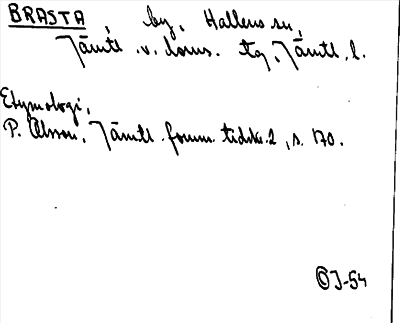 BRASTA, by, Hallens sn,
Jämtl. v. doms. tg, Jämtl. l.
Etymologi,
P. Olsson, Jämtl. fornm. tidskr. 2, s. 170.
ÖJ-54